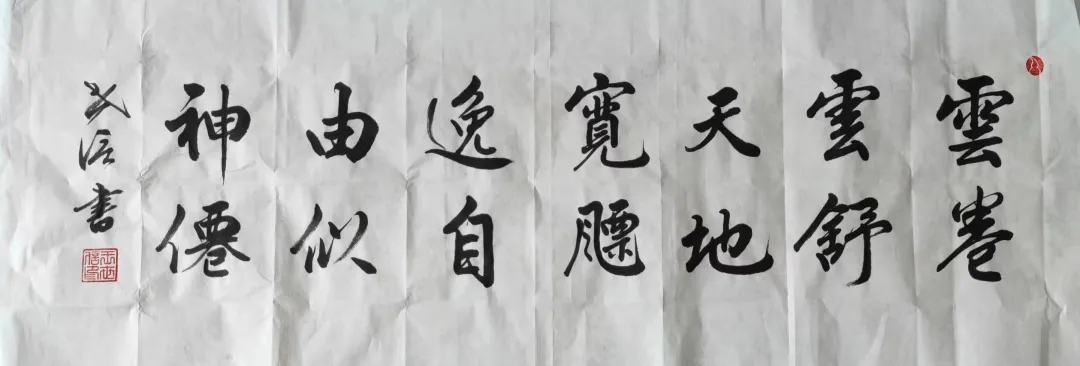 雲卷
雲舒
天地
寬飄
逸自
由似
神僊
武信書